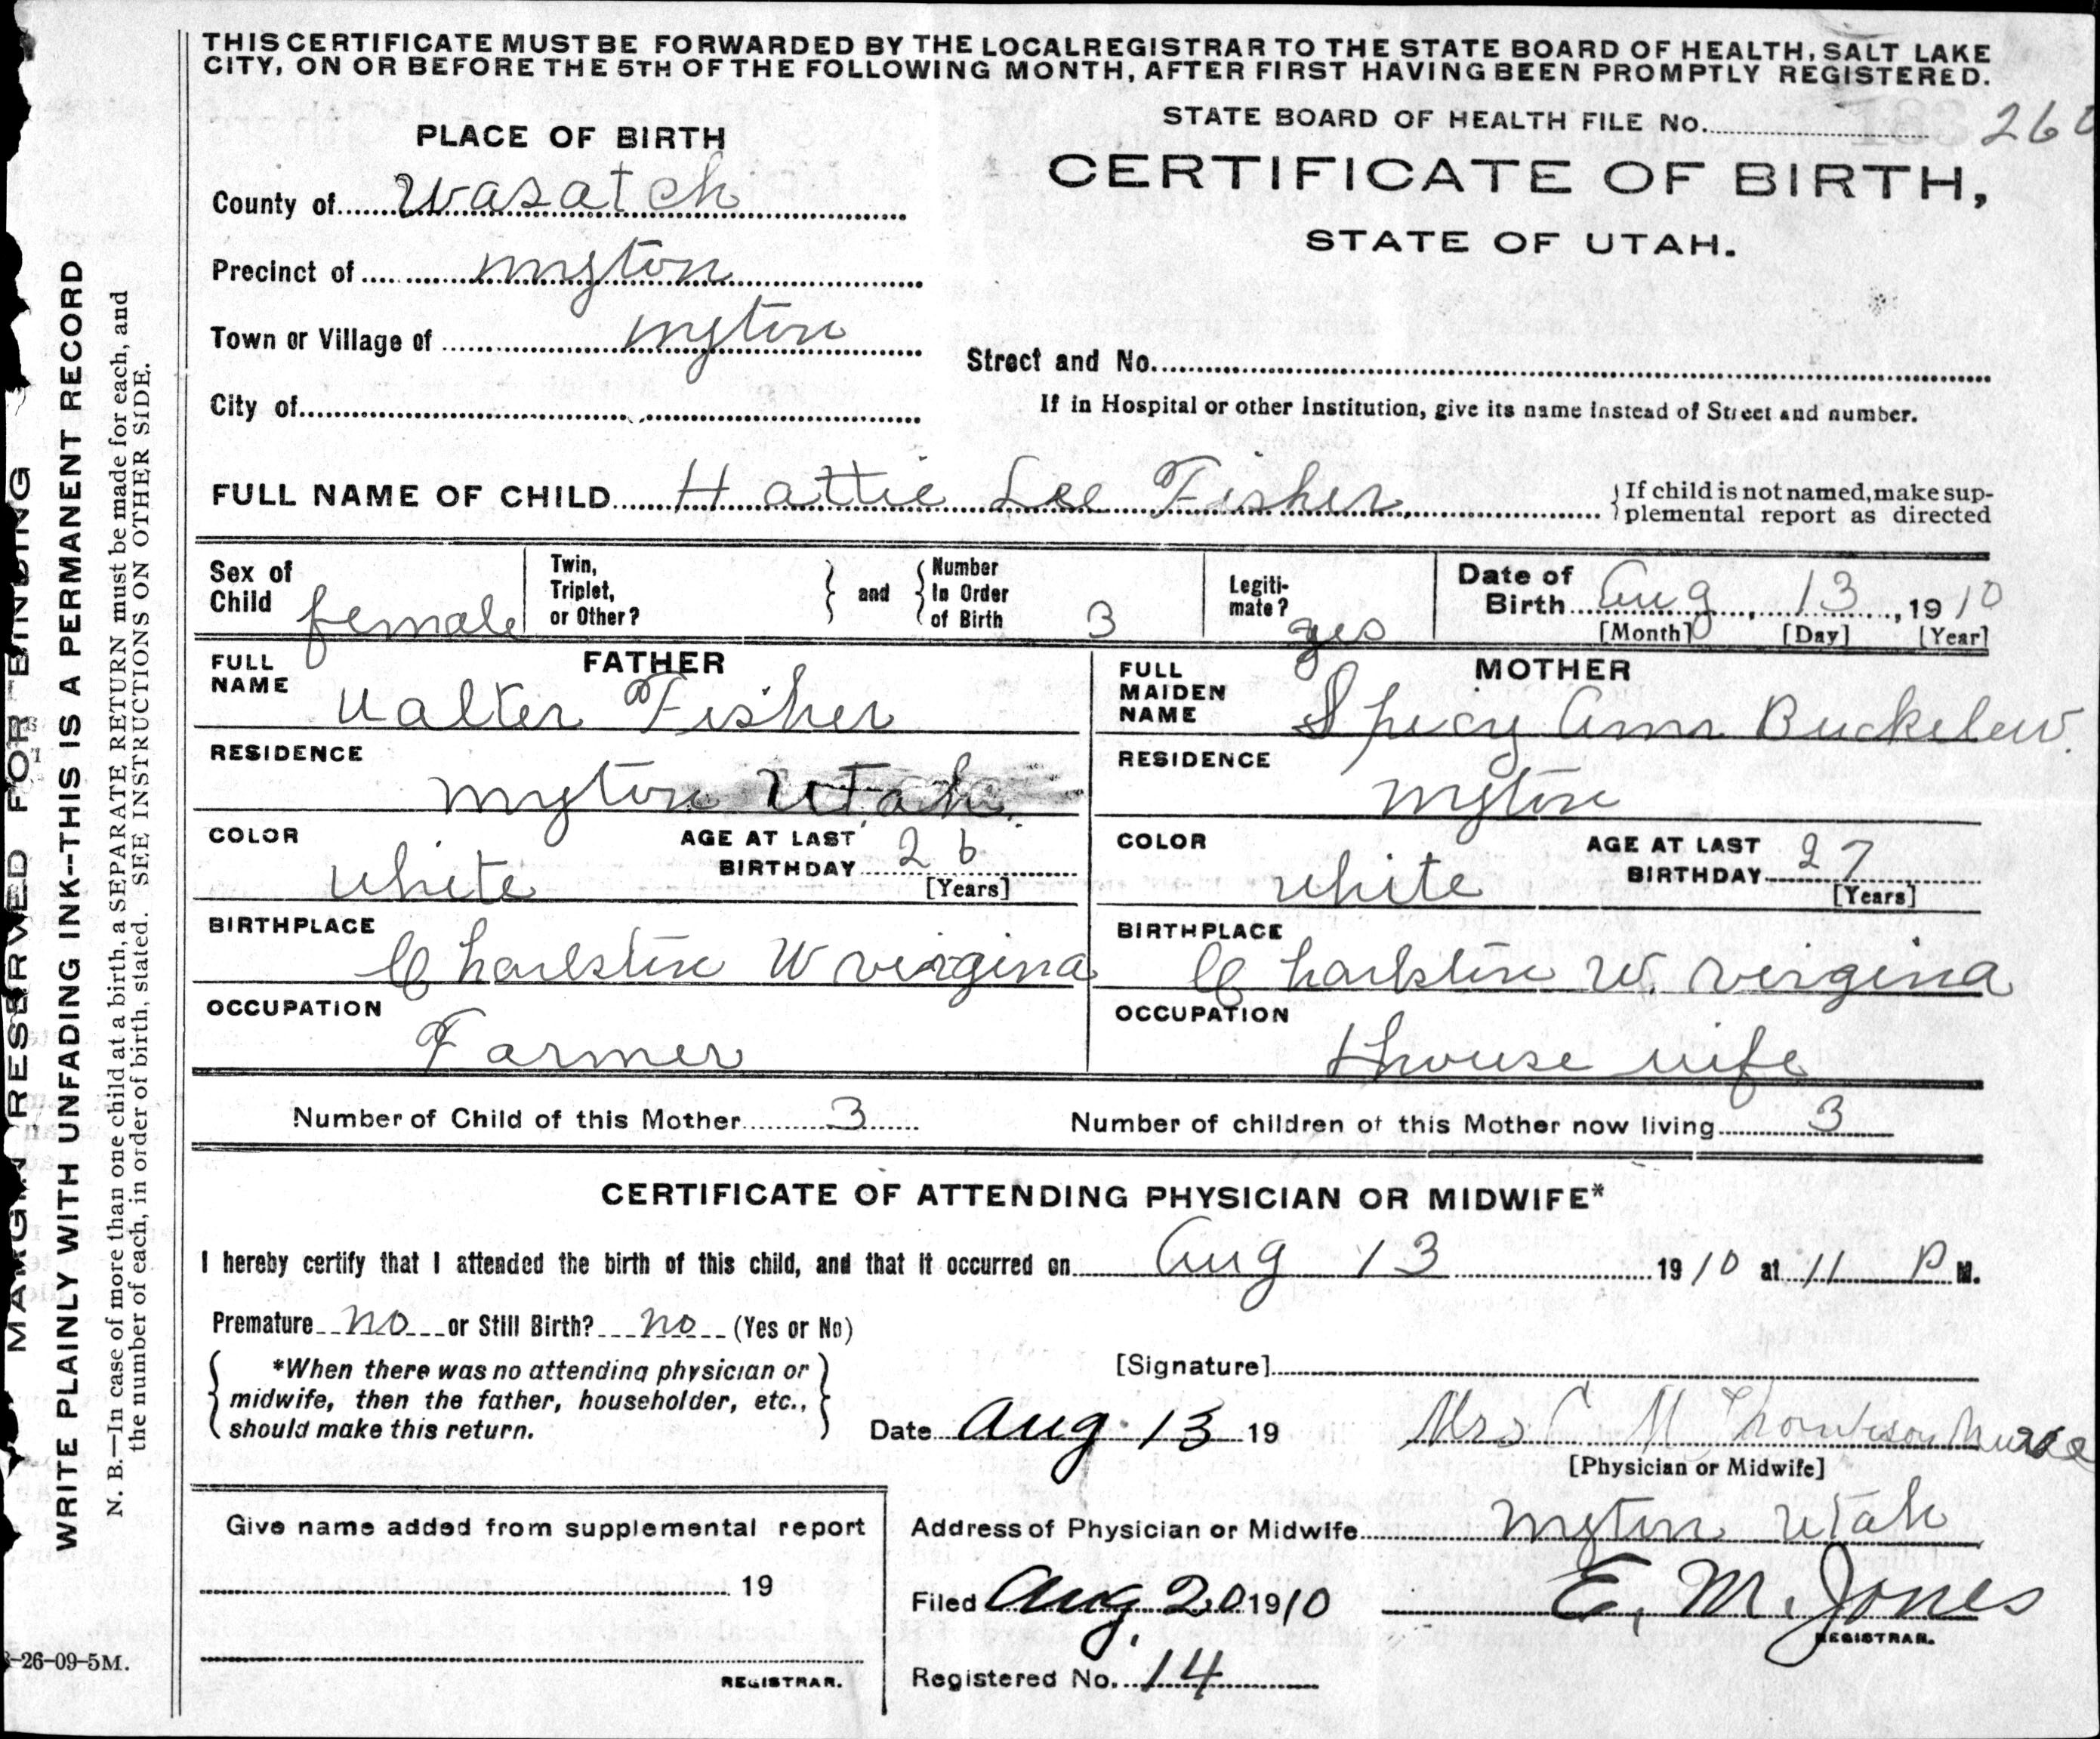 THIS CERTIFICATE MUST BE FORWARDED BY THE LOCAL REGISTRAR TO THE STATE BOARD OF HEALTH, SALT LAKE
CITY, ON OR BEFORE THE 5TH OF THE FOLLOWING MONTH, AFTER FIRST HAVING BEEN PROMPTLY REGISTERED.
STATE BOARD OF HEALTH FILE No. 260
PLACE OF BIRTH
CERTIFICATE OF BIRTH,
STATE OF UTAH.
County of Wasatch
Precinct of Myton
Town or Village of Myton
Street and No.
City of
If in Hospital or other Institution, give its name instead of Street and number.
FULL NAME OF CHILD Hattie Lee Fisher
If child is not named, make sup-
plemental report as directed
Sex of
Child female
Twin,
Triplet,
or Other?
and
Number
In Order
of Birth 3
Legiti-
mate? yes
Date of
Birth Aug 13, 1910
[Month] [Day] [Year]
FATHER
FULL
NAME
Walter Fisher
MOTHER
FULL
MAIDEN
NAME
Spicy Ann Buckelew.
RESIDENCE
Myton Utah.
RESIDENCE
Myton
COLOR
white
AGE AT LAST
BIRTHDAY 26
[Years]
COLOR
white
AGE AT LAST
BIRTHDAY 27
[Years]
BIRTHPLACE
Charlston W virgina
BIRTHPLACE
Charlston W. virgina
OCCUPATION
Farmer
OCCUPATION
House wife
Number of Child of this Mother 3
Number of children of this Mother now living 3
CERTIFICATE OF ATTENDING PHYSICIAN OR MIDWIFE*
I hereby certify that I attended the birth of this child, and that it occurred on Aug 13 1910 at 11 P M.
Premature no or Still Birth? no (Yes or No)
*When there was no attending physician or
midwife, then the father, householder, etc.,
should make this return.
[Signature]
Date Aug. 13 19
Mrs C M Nurse
[Physician or Midwife]
Address of Physician or Midwife Myton Utah
Give name added from supplemental report
19
REGISTRAR.
Filed Aug. 20 1910
E. M. Jones
REGISTRAR.
Registered No. 14
MARGIN RESERVED FOR BINDING
WRITE PLAINLY WITH UNFADING INK--THIS IS A PERMANENT RECORD
N. B.—In case of more than one child at a birth, a SEPARATE RETURN must be made for each, and
the number of each, in order of birth, stated. SEE INSTRUCTIONS ON OTHER SIDE.
-26-09-5M.